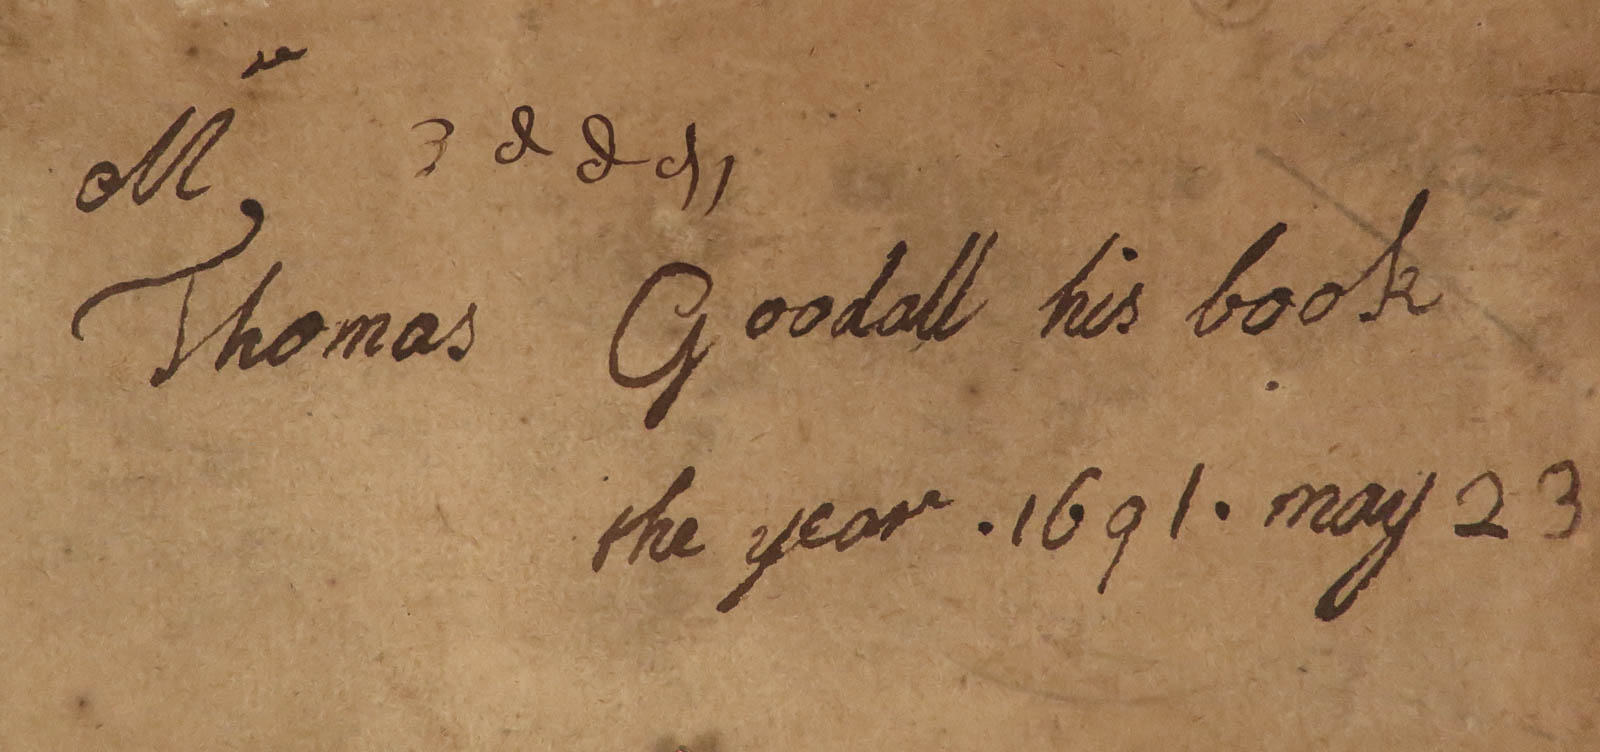 M
Thomas Goodall his book
the year .1691. may 23